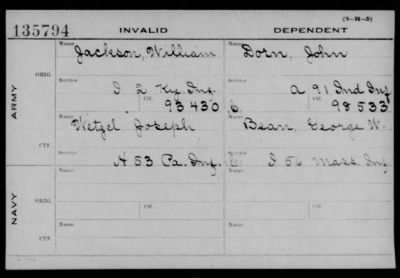 (3-M-5)
135794 INVALID DEPENDENT
Name Name
Jackson, William Dorn, John
ORIG. Service Service
I 2 Ky. Inf. A 91 Ind Inf
Ctf. Ctf.
93430 98533
ARMY
Name Name
Wetzel Joseph Bean, George W.
CTF. Service Service
H 53 Pa. Inf. I 56 Mass Inf
Name Name
ORIG. Ctf. Ctf.
NAVY
Name Name
CTF. Service Service